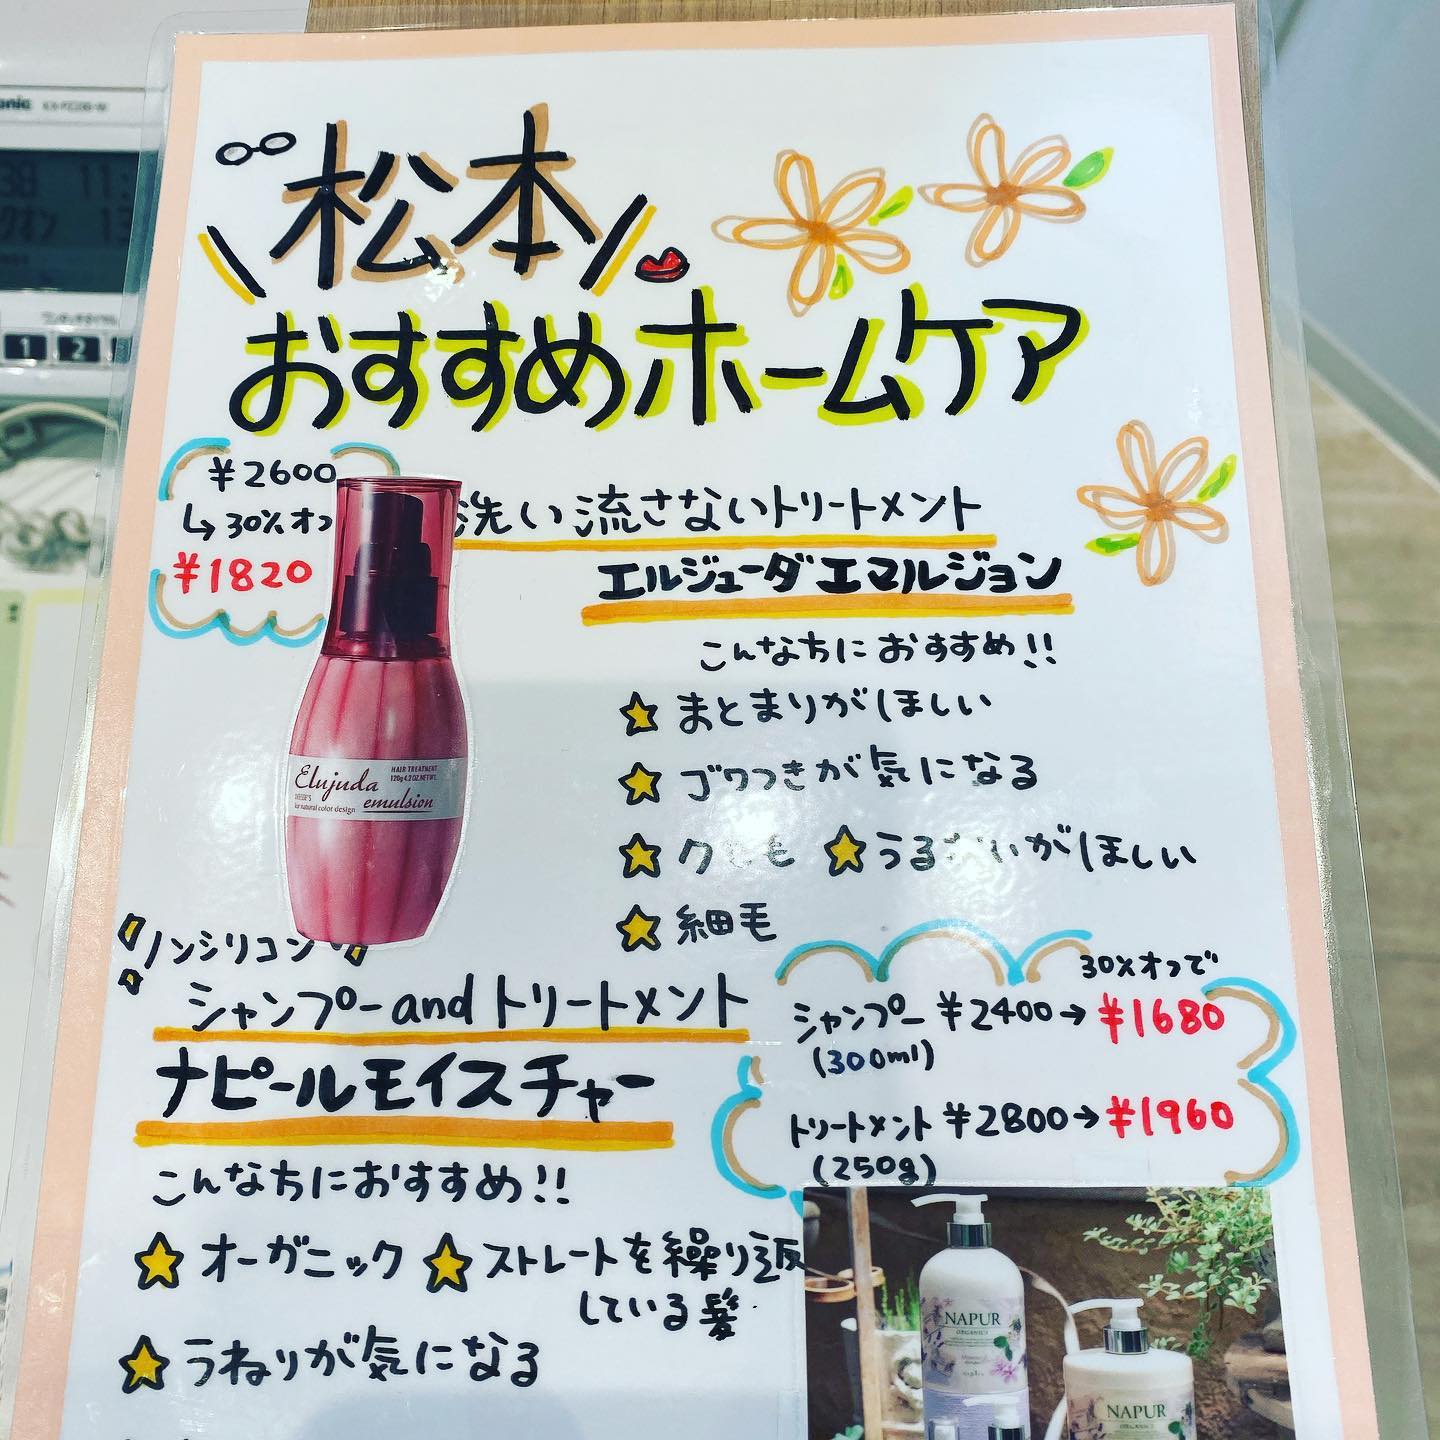 松本
おすすめホームケア
¥2600
↳30%オフ
¥1820
洗い流さないトリートメント
エルジューダエマルジョン
こんな方におすすめ!!
まとまりがほしい
ゴワつきが気になる
うるおいがほしい
細毛
Elujuda
emulsion
HAIR TREATMENT
120g 4.2 OZ.NET WT.
for natural color design
ノンシリコン
シャンプーandトリートメント
ナピュールモイスチャー
30%オフで
シャンプー ¥2400→¥1680
(300ml)
トリートメント ¥2800→¥1960
(250g)
こんな方におすすめ!!
オーガニック
ストレートを繰り返
している髪
うねりが気になる
NAPUR
ORGANICS
NAPUR
ORGANICS
1 2